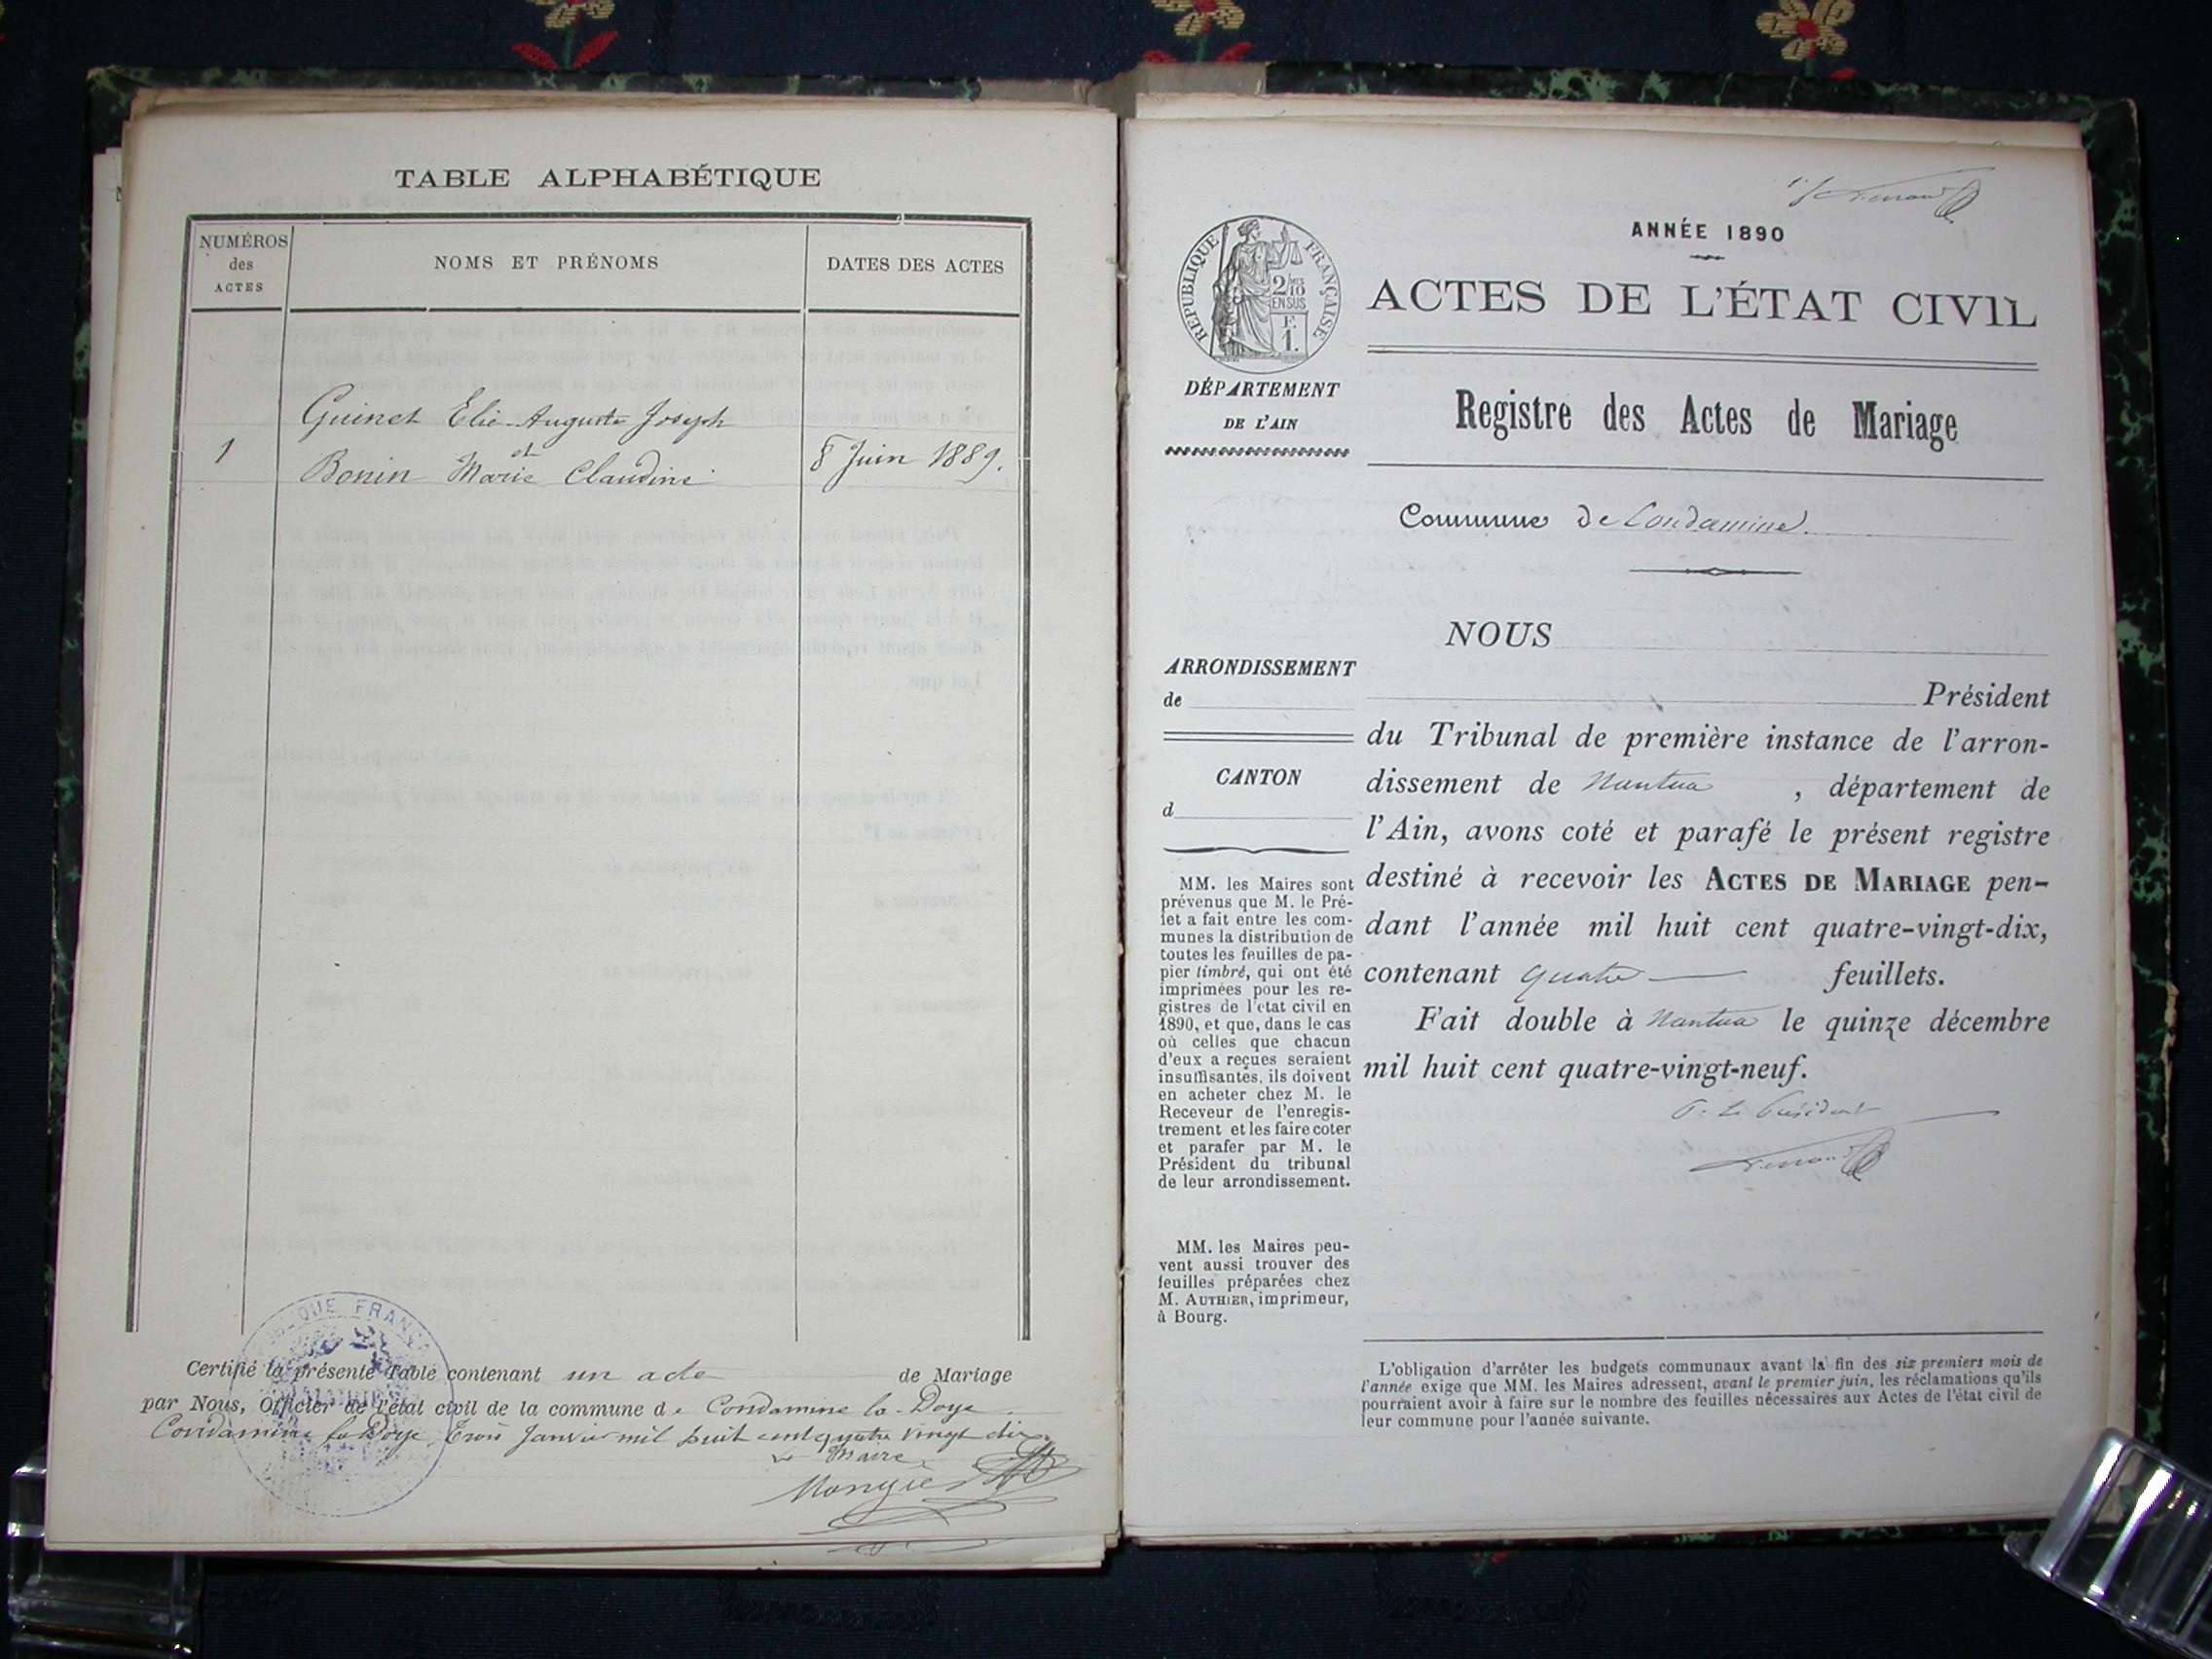 TABLE ALPHABÉTIQUE
NUMÉROS
des
ACTES
NOMS ET PRÉNOMS
DATES DES ACTES
Guinet Elie-Auguste Joseph
et
1
Bonin Marie Claudine
8 Juin 1889.
Certifié la présente Table contenant un acte de Mariage
par Nous, Officier de l'état civil de la commune de Condamine la-Doye.
Condamine la Doye, trois Janvier mil huit cent quatre vingt dix
Le Maire
ANNÉE 1890
RÉPUBLIQUE FRANÇAISE
2/10
EN SUS
F.
1.
ACTES DE L'ÉTAT CIVIL
DÉPARTEMENT
DE L'AIN
Registre des Actes de Mariage
Commune de Condamine.
NOUS
ARRONDISSEMENT
de
Président
du Tribunal de première instance de l'arron-
CANTON
d
dissement de Nantua , département de
l'Ain, avons coté et parafé le présent registre
destiné à recevoir les ACTES DE MARIAGE pen-
dant l'année mil huit cent quatre-vingt-dix,
contenant quatre feuillets.
Fait double à Nantua le quinze décembre
mil huit cent quatre-vingt-neuf.
P. Le Président
MM. les Maires sont
prévenus que M. le Pré-
fet a fait entre les com-
munes la distribution de
toutes les feuilles de pa-
pier timbré, qui ont été
imprimées pour les re-
gistres de l'état civil en
1890, et que, dans le cas
où celles que chacun
d'eux a reçues seraient
insuffisantes, ils doivent
en acheter chez M. le
Receveur de l'enregis-
trement et les faire coter
et parafer par M. le
Président du tribunal
de leur arrondissement.
MM. les Maires peu-
vent aussi trouver des
feuilles préparées chez
M. AUTHIER, imprimeur,
à Bourg.
L'obligation d'arrêter les budgets communaux avant la fin des six premiers mois de
l'année exige que MM. les Maires adressent, avant le premier juin, les réclamations qu'ils
pourraient avoir à faire sur le nombre des feuilles nécessaires aux Actes de l'état civil de
leur commune pour l'année suivante.